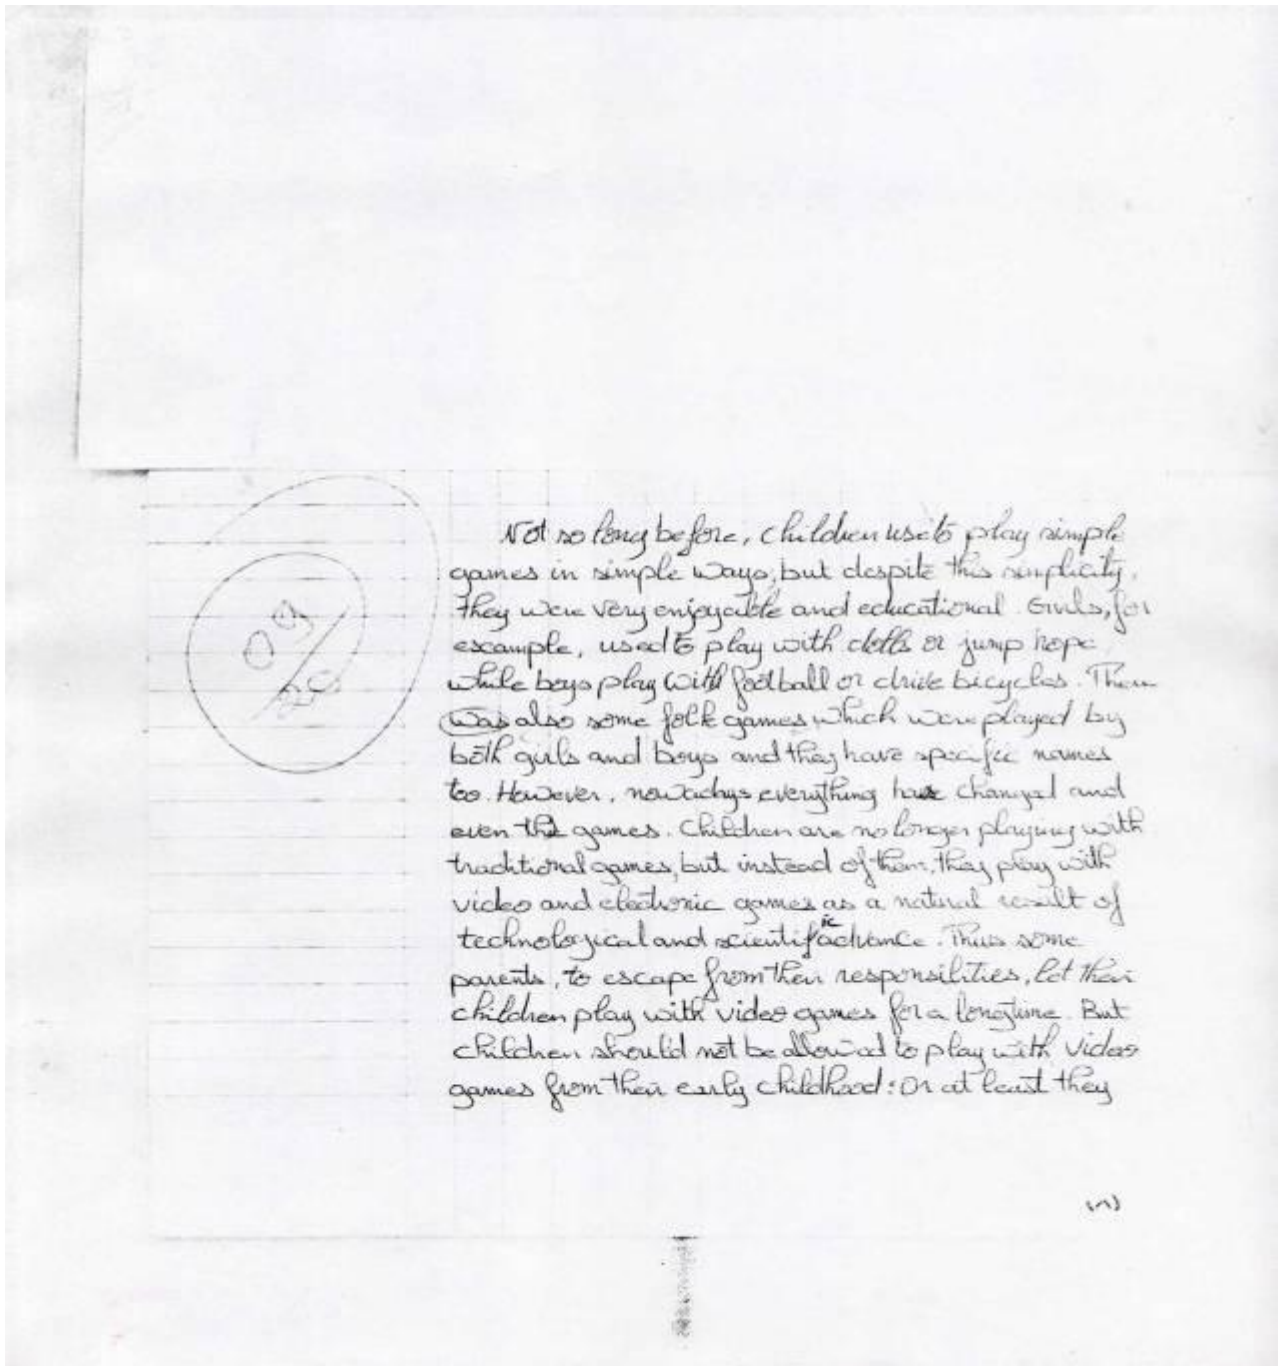 09/20
Not so long before, children use to play simple
games in simple ways, but despite this simplicity,
they were very enjoyable and educational. Girls, for
example, used to play with dolls or jump rope
while boys play with football or drive bicycles. There
was also some folk games which were played by
both girls and boys and they have specific names
too. However, nowadays everything has changed and
even the games. Children are no longer playing with
traditional games, but instead of them, they play with
video and electronic games as a natural result of
technological and scientific advance. Thus some
parents, to escape from their responsilities, let their
children play with video games for a longtime. But
children should not be allowed to play with video
games from their early childhood: Or at least they